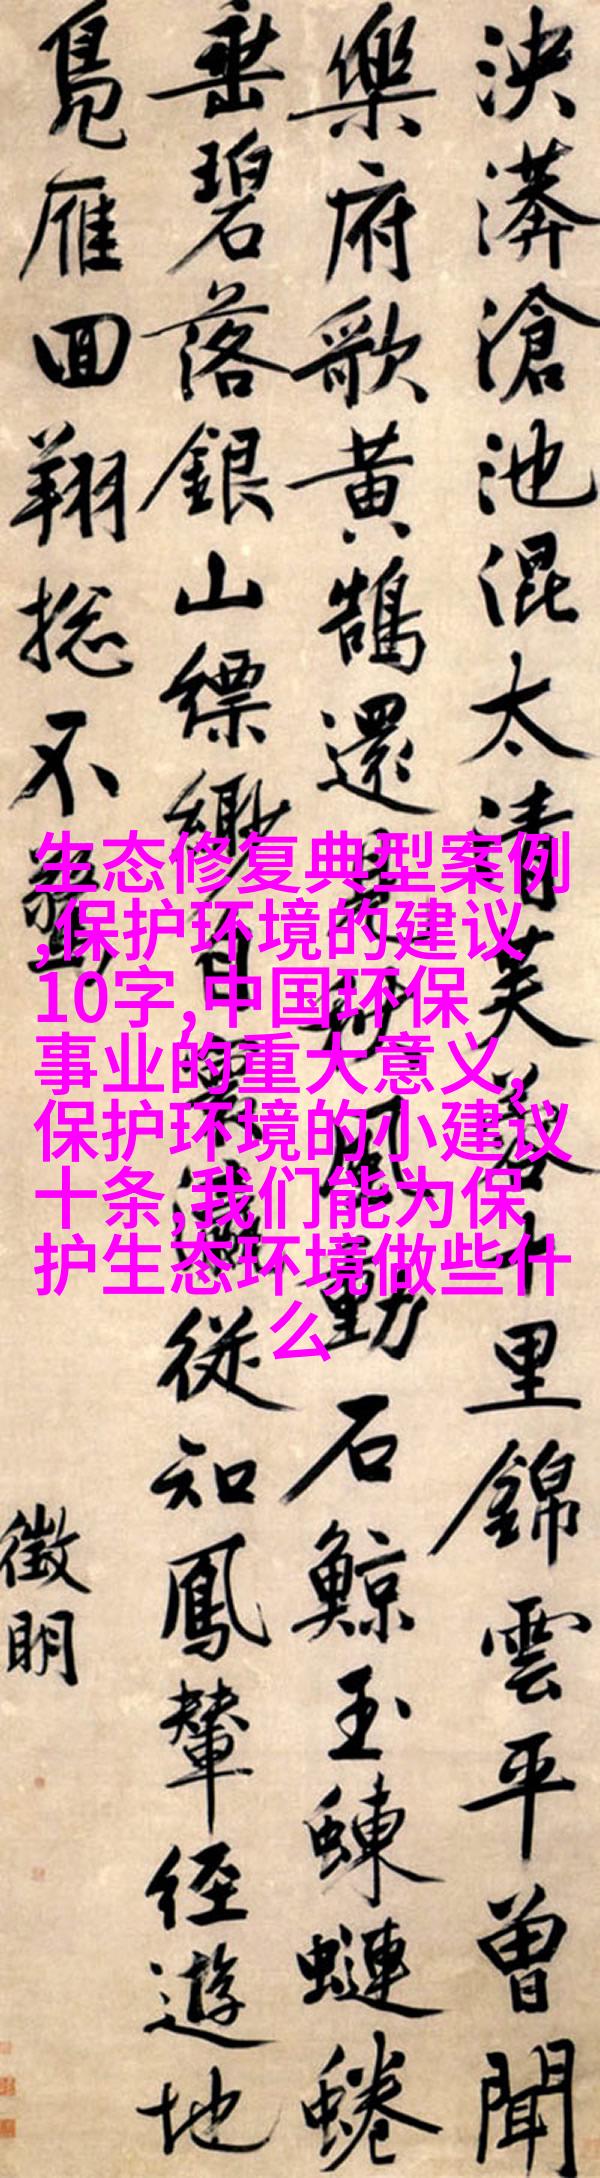 泱漭滄池混太清芙蓉十里錦雲平曾聞
樂府歌黃鵠還見秋風動石鯨玉蝀𧐖蜷
垂碧落銀山縹緲自從知鳳輦經遊地
鳧雁囬翔捴不驚
徵明
生态修复典型案例
,保护环境的建议
10字,中国环保
事业的重大意义,
保护环境的小建议
十条,我们能为保
护生态环境做些什
么